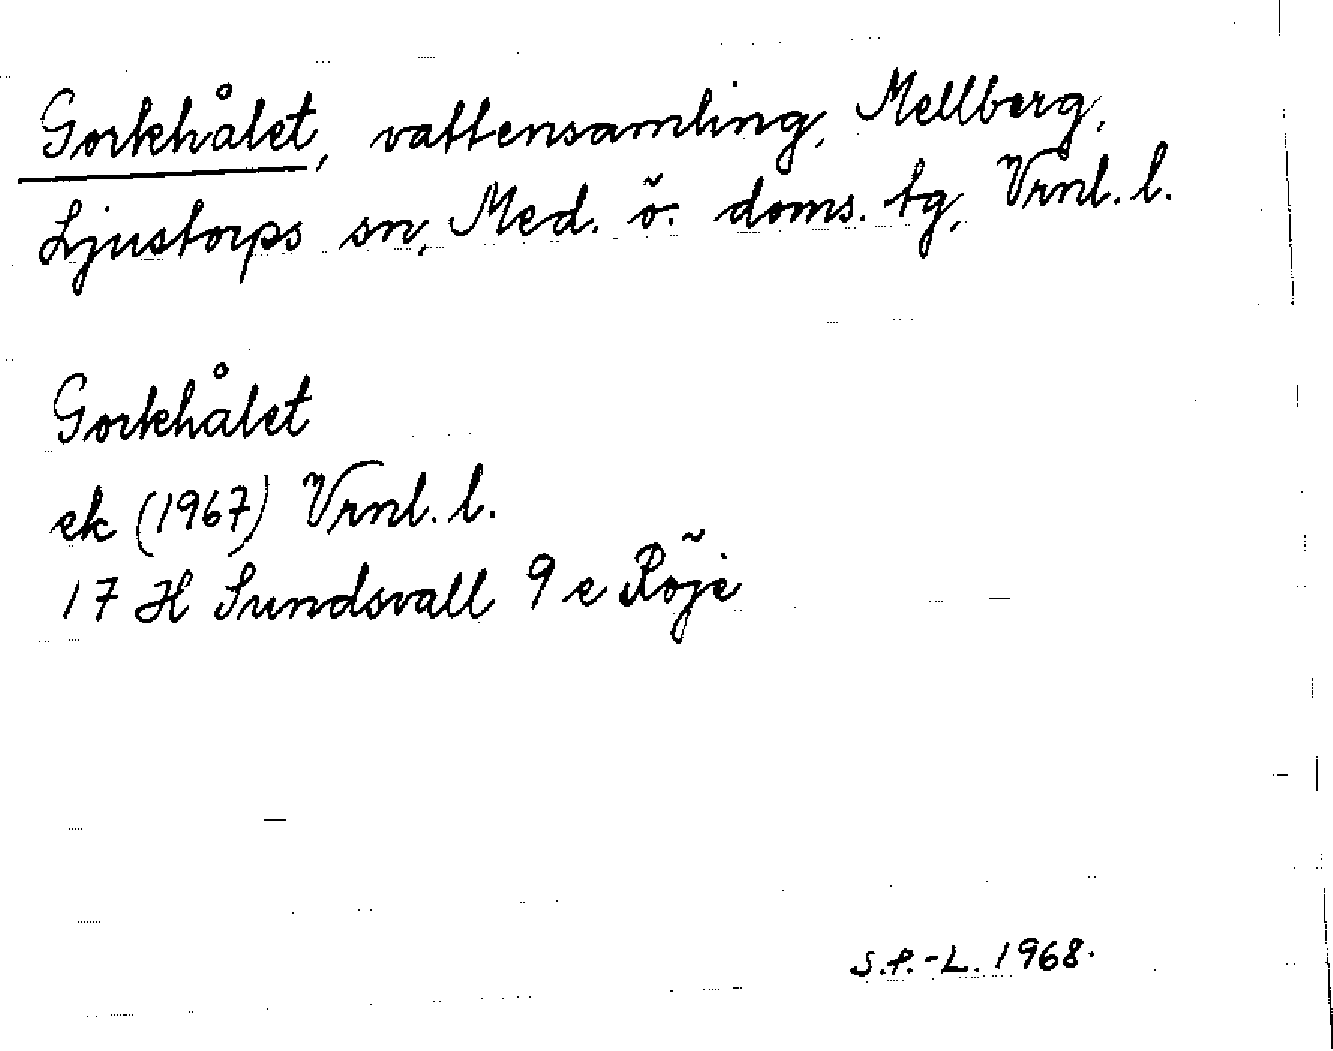 Gorkhålet, vattensamling, Mellberg,
Ljustorps sn, Med. ö. doms. tg, Vrnl. l.
Gorkhålet
ek (1967) Vrnl. l.
17 H Sundsvall 9 e Röje
S.P.-L. 1968.